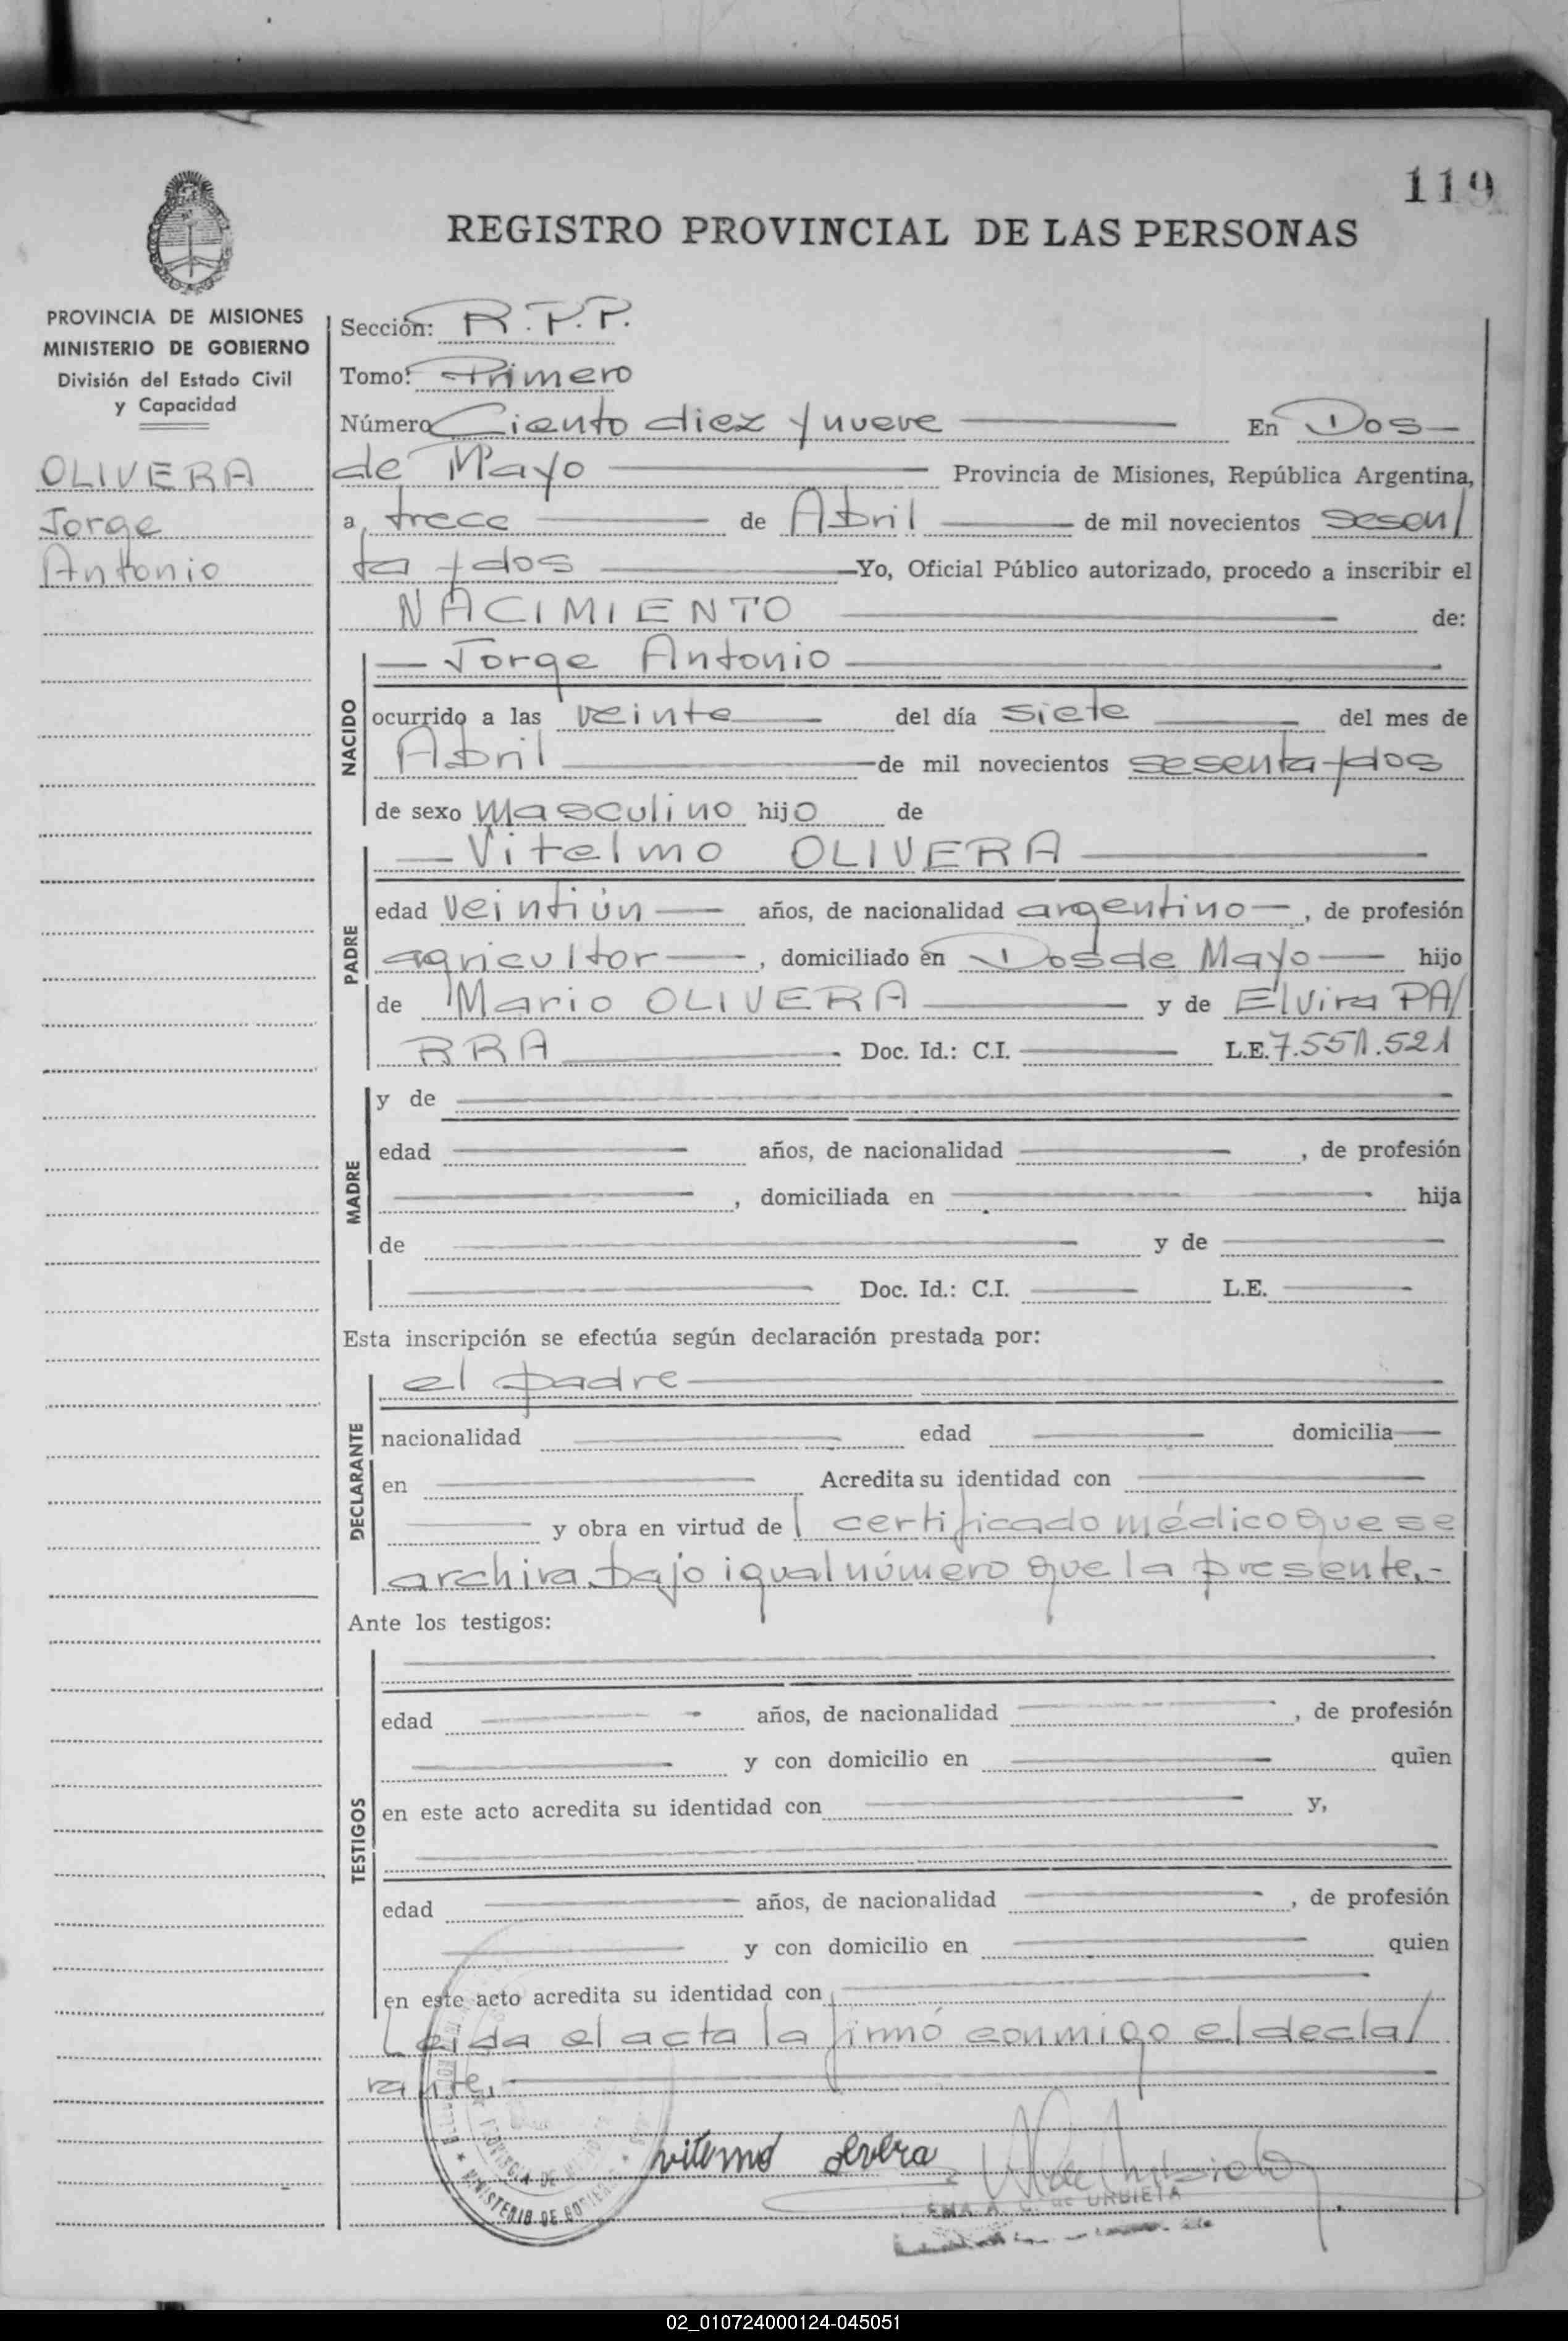 119
REGISTRO PROVINCIAL DE LAS PERSONAS
PROVINCIA DE MISIONES
MINISTERIO DE GOBIERNO
División del Estado Civil
y Capacidad
OLIVERA
Jorge
Antonio
Sección: R.P.P.
Tomo: Primero
Número Ciento diez y nueve En Dos
de Mayo Provincia de Misiones, República Argentina,
a trece de Abril de mil novecientos sesen/
ta y dos Yo, Oficial Público autorizado, procedo a inscribir el
NACIMIENTO de:
NACIDO
Jorge Antonio
ocurrido a las veinte del día siete del mes de
Abril de mil novecientos sesenta y dos
de sexo Masculino hijo de
PADRE
Vitelmo OLIVERA
edad veintiún años, de nacionalidad argentino, de profesión
agricultor, domiciliado en Dos de Mayo hijo
de Mario OLIVERA y de Elvira PA/
RRA Doc. Id.: C.I. L.E. 7.551.521
MADRE
y de
edad años, de nacionalidad , de profesión
, domiciliada en hija
de y de
Doc. Id.: C.I. L.E.
Esta inscripción se efectúa según declaración prestada por:
DECLARANTE
el padre
nacionalidad edad domicilia
en Acredita su identidad con
y obra en virtud del certificado médico que se
archiva bajo igual número que la presente.-
Ante los testigos:
TESTIGOS
edad años, de nacionalidad , de profesión
y con domicilio en quien
en este acto acredita su identidad con y,
edad años, de nacionalidad , de profesión
y con domicilio en quien
en este acto acredita su identidad con
Leida el acta la firmó conmigo el decla/
rante.
MINISTERIO DE GOBIERNO
PROVINCIA DE
vitemo olvera
A. C. de URBIETA
02_010724000124-045051